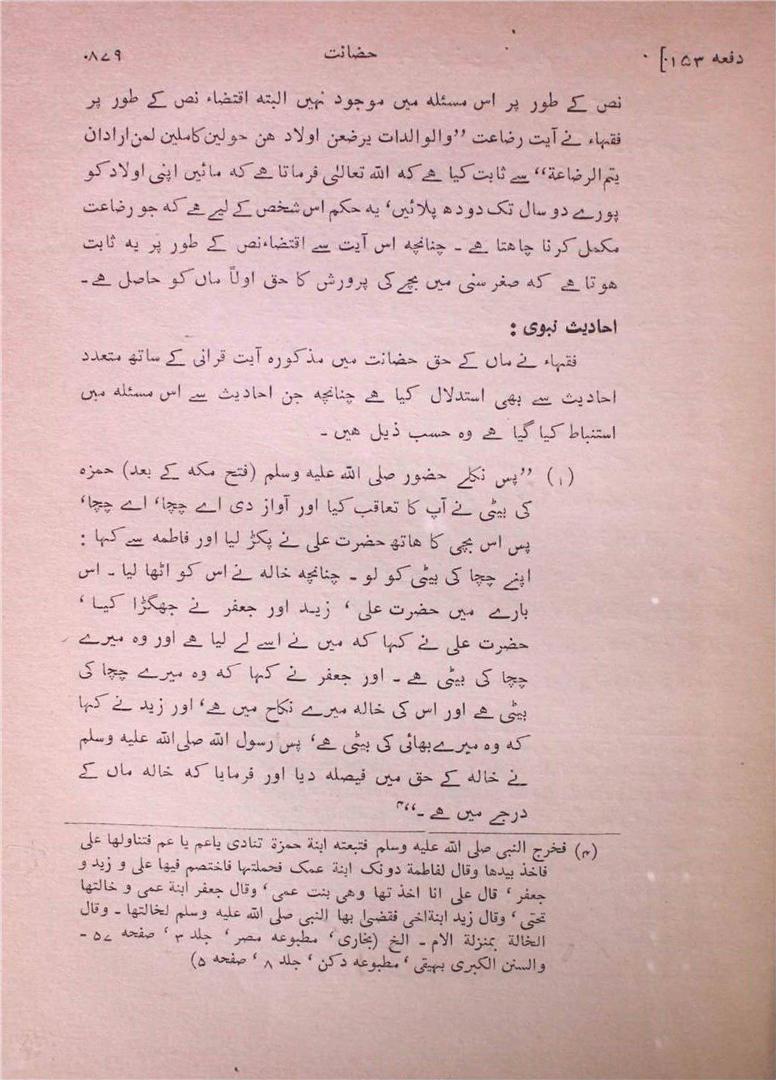 دفعہ ۱۵۳] حضانت ۸۷۹
نص کے طور پر اس مسئلہ میں موجود نہیں البتہ اقتضاء نص کے طور پر
فقہاء نے آیت رضاعت ”والوالدات یرضعن اولاد ھن حولین کاملین لمن ارادان
یتم الرضاعة“ سے ثابت کیا ہے کہ اللہ تعالیٰ فرماتا ہے کہ مائیں اپنی اولاد کو
پورے دو سال تک دودھ پلائیں‘ یہ حکم اس شخص کے لیے ہے کہ جو رضاعت
مکمل کرنا چاھتا ہے ۔ چنانچہ اس آیت سے اقتضاء نص کے طور پر یہ ثابت
ھوتا ہے کہ صغر سنی میں بچے کی پرورش کا حق اولاً ماں کو حاصل ہے ۔
احادیث نبوی :
فقہاء نے ماں کے حق حضانت میں مذکورہ آیت قرانی کے ساتھ متعدد
احادیث سے بھی استدلال کیا ہے چنانچہ جن احادیث سے اس مسئلہ میں
استنباط کیا گیا ہے وہ حسب ذیل ھیں ۔
(۱) ”پس نکلے حضور صلی اللہ علیہ وسلم (فتح مکہ کے بعد) حمزہ
کی بیٹی نے آپ کا تعاقب کیا اور آواز دی اے چچا‘ اے چچا‘
پس اس بچی کا ھاتھ حضرت علی نے پکڑ لیا اور فاطمہ سے کہا :
اپنے چچا کی بیٹی کو لو ۔ چنانچہ خالہ نے اس کو اٹھا لیا ۔ اس
بارے میں حضرت علی ‘ زید اور جعفر نے جھگڑا کیا ‘
حضرت علی نے کہا کہ میں نے اسے لے لیا ہے اور وہ میرے
چچا کی بیٹی ہے ۔ اور جعفر نے کہا کہ وہ میرے چچا کی
بیٹی ہے اور اس کی خالہ میرے نکاح میں ہے‘ اور زید نے کہا
کہ وہ میرے بھائی کی بیٹی ہے‘ پس رسول اللہ صلی اللہ علیہ وسلم
نے خالہ کے حق میں فیصلہ دیا اور فرمایا کہ خالہ ماں کے
درجے میں ہے ۔“۴
(۴) فخرج النبی صلی اللہ علیہ وسلم فتبعته ابنة حمزة تنادی یاعم یا عم فتناولها علی
فاخذ بیدها وقال لفاطمة دونک ابنة عمک فحملتها فاختصم فیها علی و زید و
جعفر ‘ قال علی انا اخذ تها وهی بنت عمی‘ وقال جعفر ابنة عمی و خالتها
تحتی‘ وقال زید ابنة اخی فقضیٰ بها النبی صلی اللہ علیہ وسلم لخالتها ۔ وقال
الخالة بمنزلة الام ۔ الخ (بخاری‘ مطبوعہ مصر‘ جلد ۳ ‘ صفحہ ۵۷ ۔
والسنن الکبری بہیقی‘ مطبوعہ دکن‘ جلد ۸ ‘ صفحہ ۵)